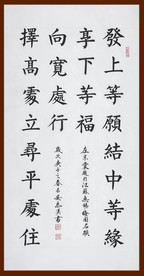 發上等願結中等緣
享下等福
左宗棠題於江蘇無錫梅園
向寬處行
歲次庚子之春
擇髙處立尋平處住